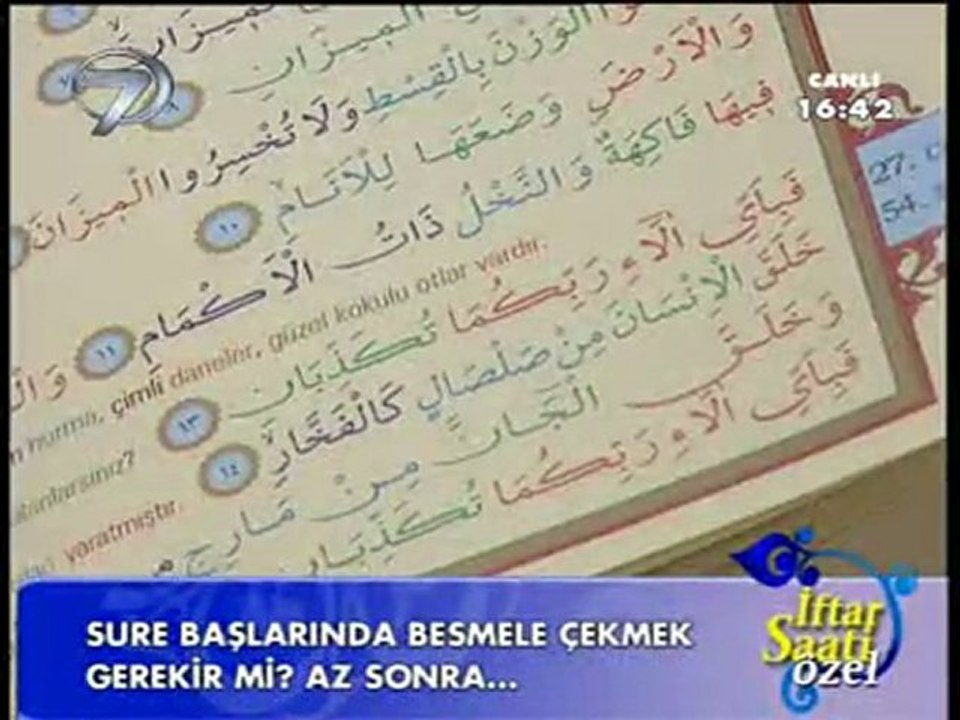 CANLI
16:42
الْمِيزَانِ
الْوَزْنَ بِالْقِسْطِ وَلَا تُخْسِرُوا الْمِيزَانَ
وَالْاَرْضَ وَضَعَهَا لِلْاَنَامِ ١٠
فِيهَا فَاكِهَةٌ وَالنَّخْلُ ذَاتُ الْاَكْمَامِ ١١
27.
54.
hurma, çimli daneler, güzel kokulu otlar vardır.
فَبِاَيِّ اٰلَاءِ رَبِّكُمَا تُكَذِّبَانِ ١٣
خَلَقَ الْاِنْسَانَ مِنْ صَلْصَالٍ كَالْفَخَّارِ ١٤
yaratmıştır.
وَخَلَقَ الْجَانَّ مِنْ مَارِجٍ
فَبِاَيِّ اٰلَاءِ رَبِّكُمَا تُكَذِّبَانِ
SURE BAŞLARINDA BESMELE ÇEKMEK
GEREKİR Mİ? AZ SONRA...
İftar
Saati
özel